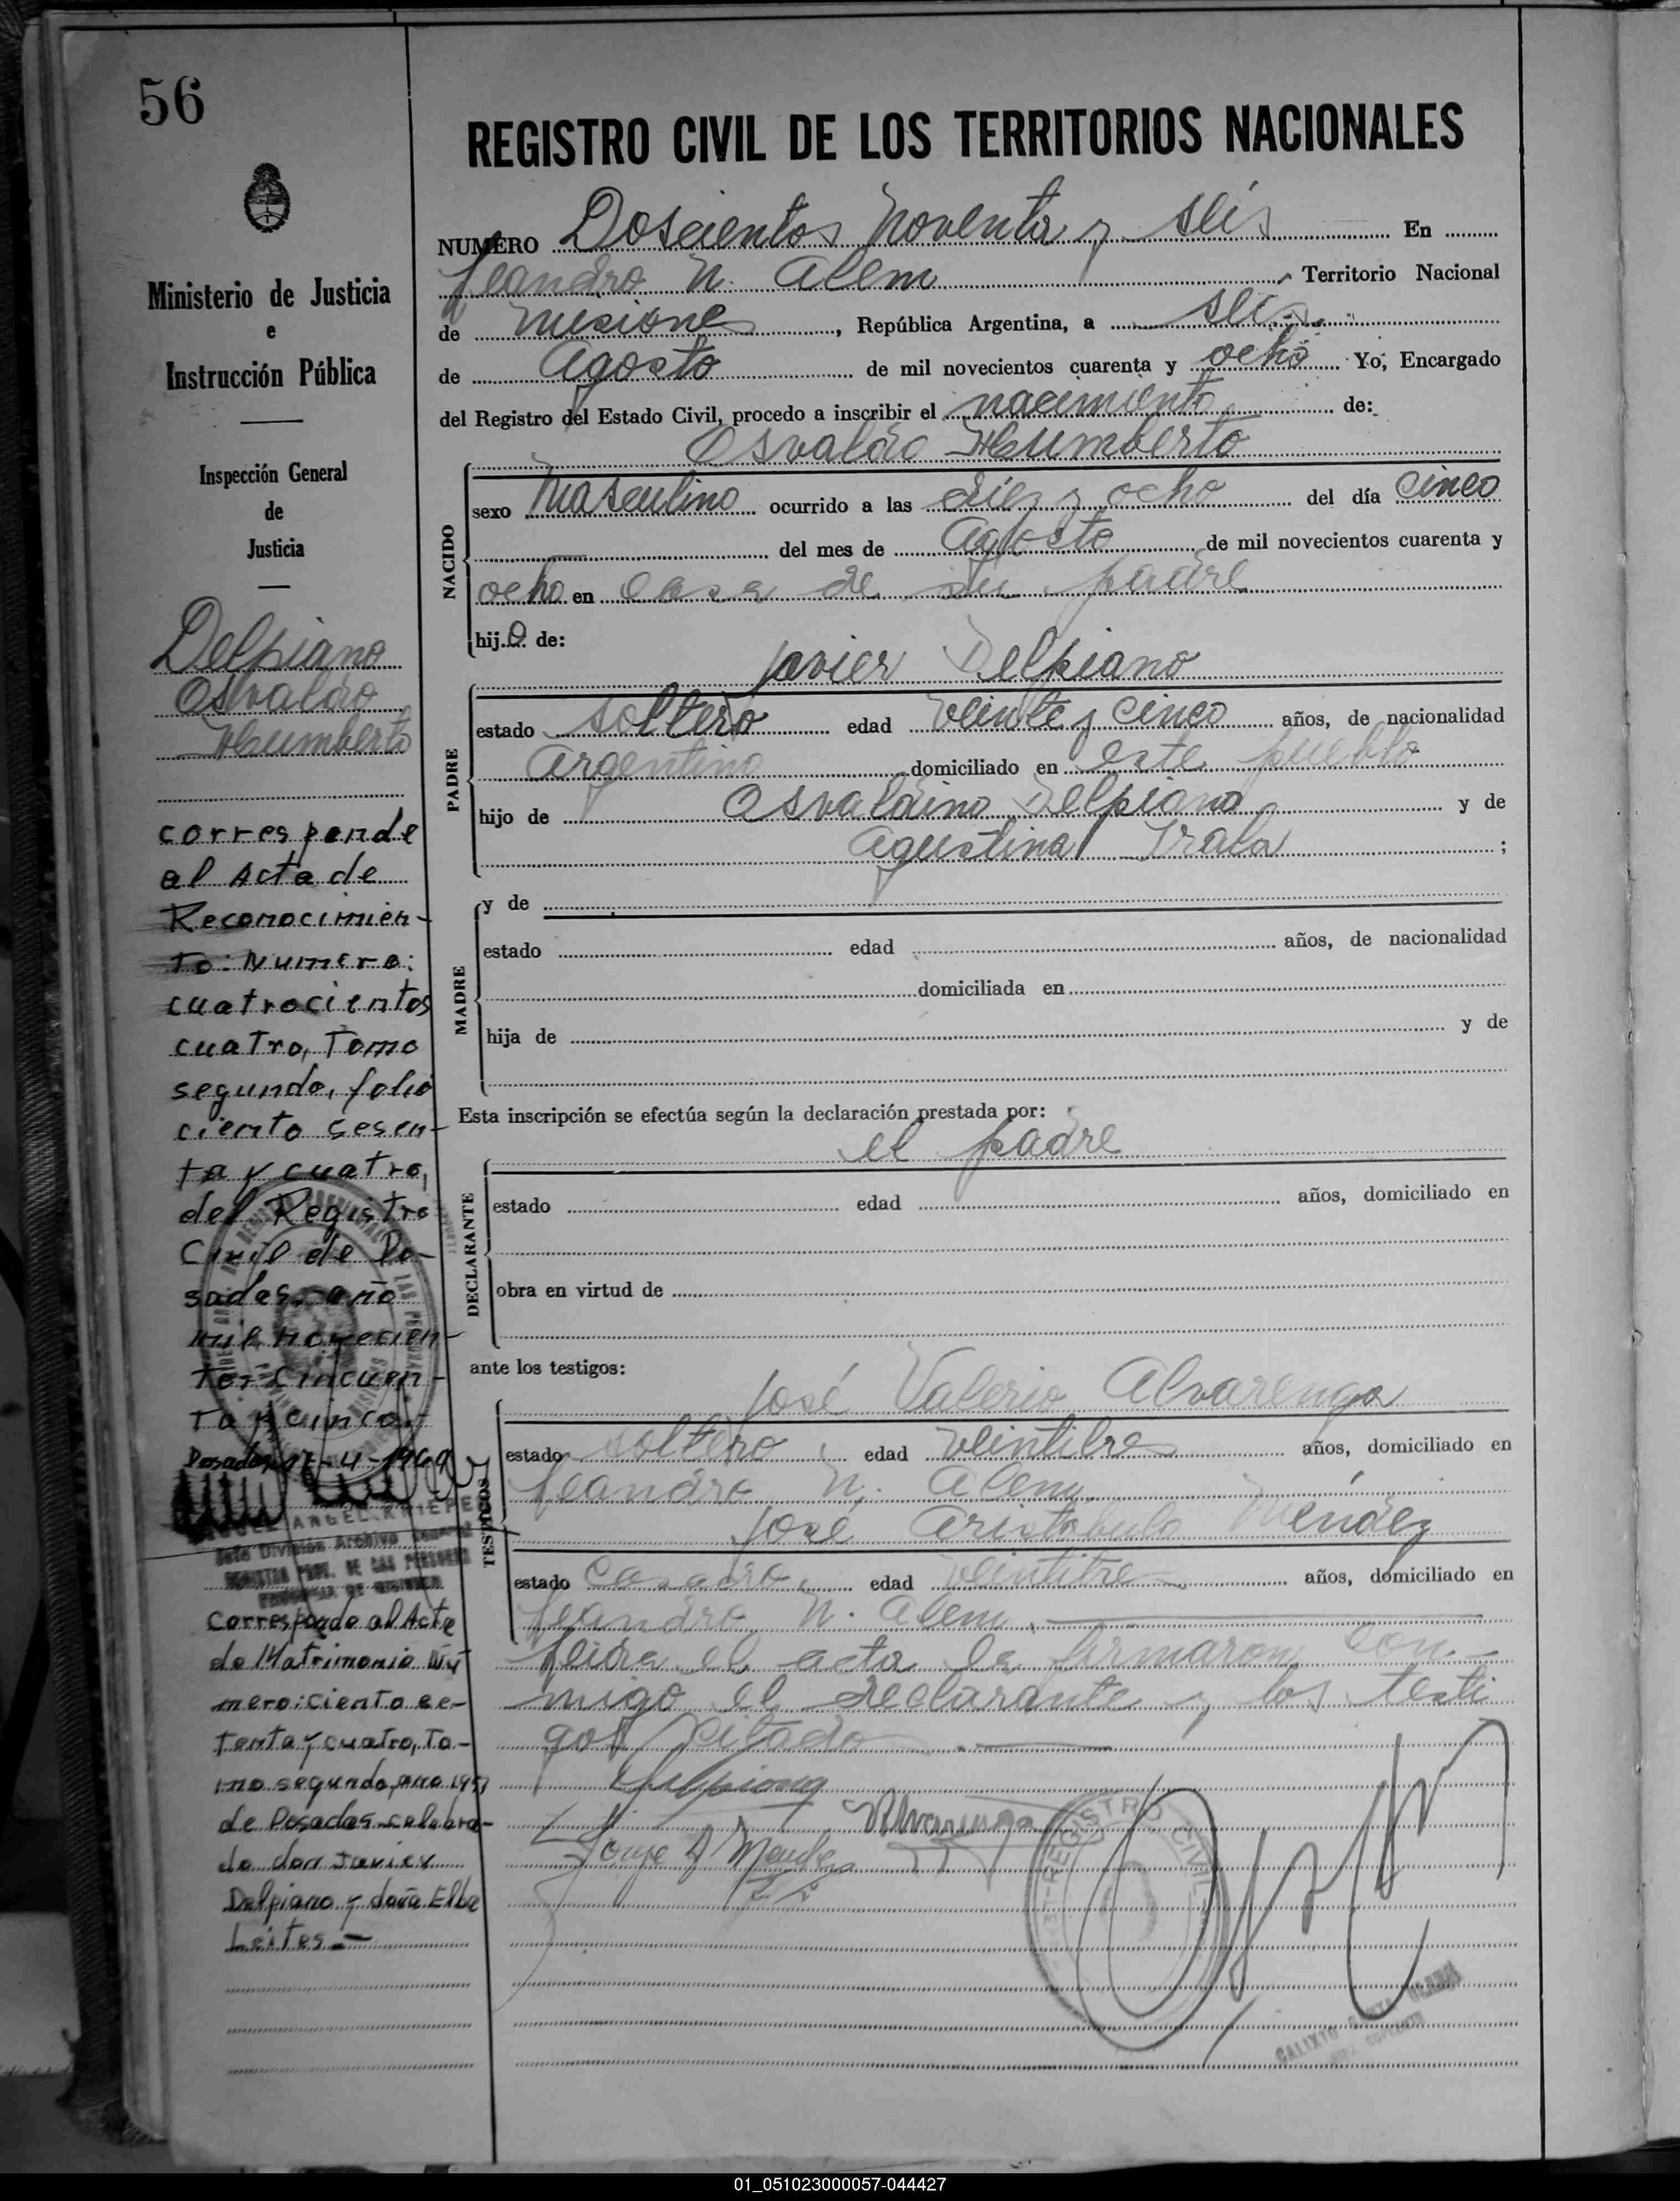 56
Ministerio de Justicia
e
Instrucción Pública
Inspección General
de
Justicia
Delpiano
Osvaldo
Humberto
corresponde
al Acta de
Reconocimien-
to: Numero:
cuatrocientos
cuatro, Tomo
segundo, folio
ciento sesen-
ta y cuatro,
del Registro
Civil de Po-
sadas, año
mil novecien-
tos cincuen-
ta y cinco.-
Posadas, -4-1969
ANGEL KNIEPE
Jefe División Archivo General
REGISTRO PROV. DE LAS PERSONAS
PROVINCIA DE MISIONES
Corresponde al Acta
de Matrimonio Nú-
mero: ciento se-
tenta y cuatro, To-
mo segundo, año 195
de Posadas celebra-
do don Javier
Delpiano y doña Elba
Leites.-
REGISTRO CIVIL DE LOS TERRITORIOS NACIONALES
NUMERO Doscientos Noventa y seis En
Leandro N. Alem, Territorio Nacional
de Misiones, República Argentina, a seis
de Agosto de mil novecientos cuarenta y ocho Yo, Encargado
del Registro del Estado Civil, procedo a inscribir el nacimiento de:
Osvaldo Humberto
NACIDO
sexo Masculino ocurrido a las diez y ocho del día cinco
del mes de Agosto de mil novecientos cuarenta y
ocho en casa de su padre
hijo de:
Javier Delpiano
PADRE
estado soltero edad veinte y cinco años, de nacionalidad
Argentino domiciliado en este pueblo
hijo de Osvaldino Delpiano y de
Agustina Irala ;
MADRE
y de
estado edad años, de nacionalidad
domiciliada en
hija de y de
Esta inscripción se efectúa según la declaración prestada por:
el padre
DECLARANTE
estado edad años, domiciliado en
obra en virtud de
ante los testigos:
José Valerio Alvarenga
TESTIGOS
estado soltero, edad veintitres años, domiciliado en
Leandro N. Alem,
José Aristobulo Méndez
estado casado, edad veintitres años, domiciliado en
Leandro N. Alem.
Leida el acta la firmaron con-
migo el declarante y los testi
gos citado
Delpiano
Alvarenga
Jorge A Mendez
REGISTRO CIVIL
CALIXTO
01_051023000057-044427